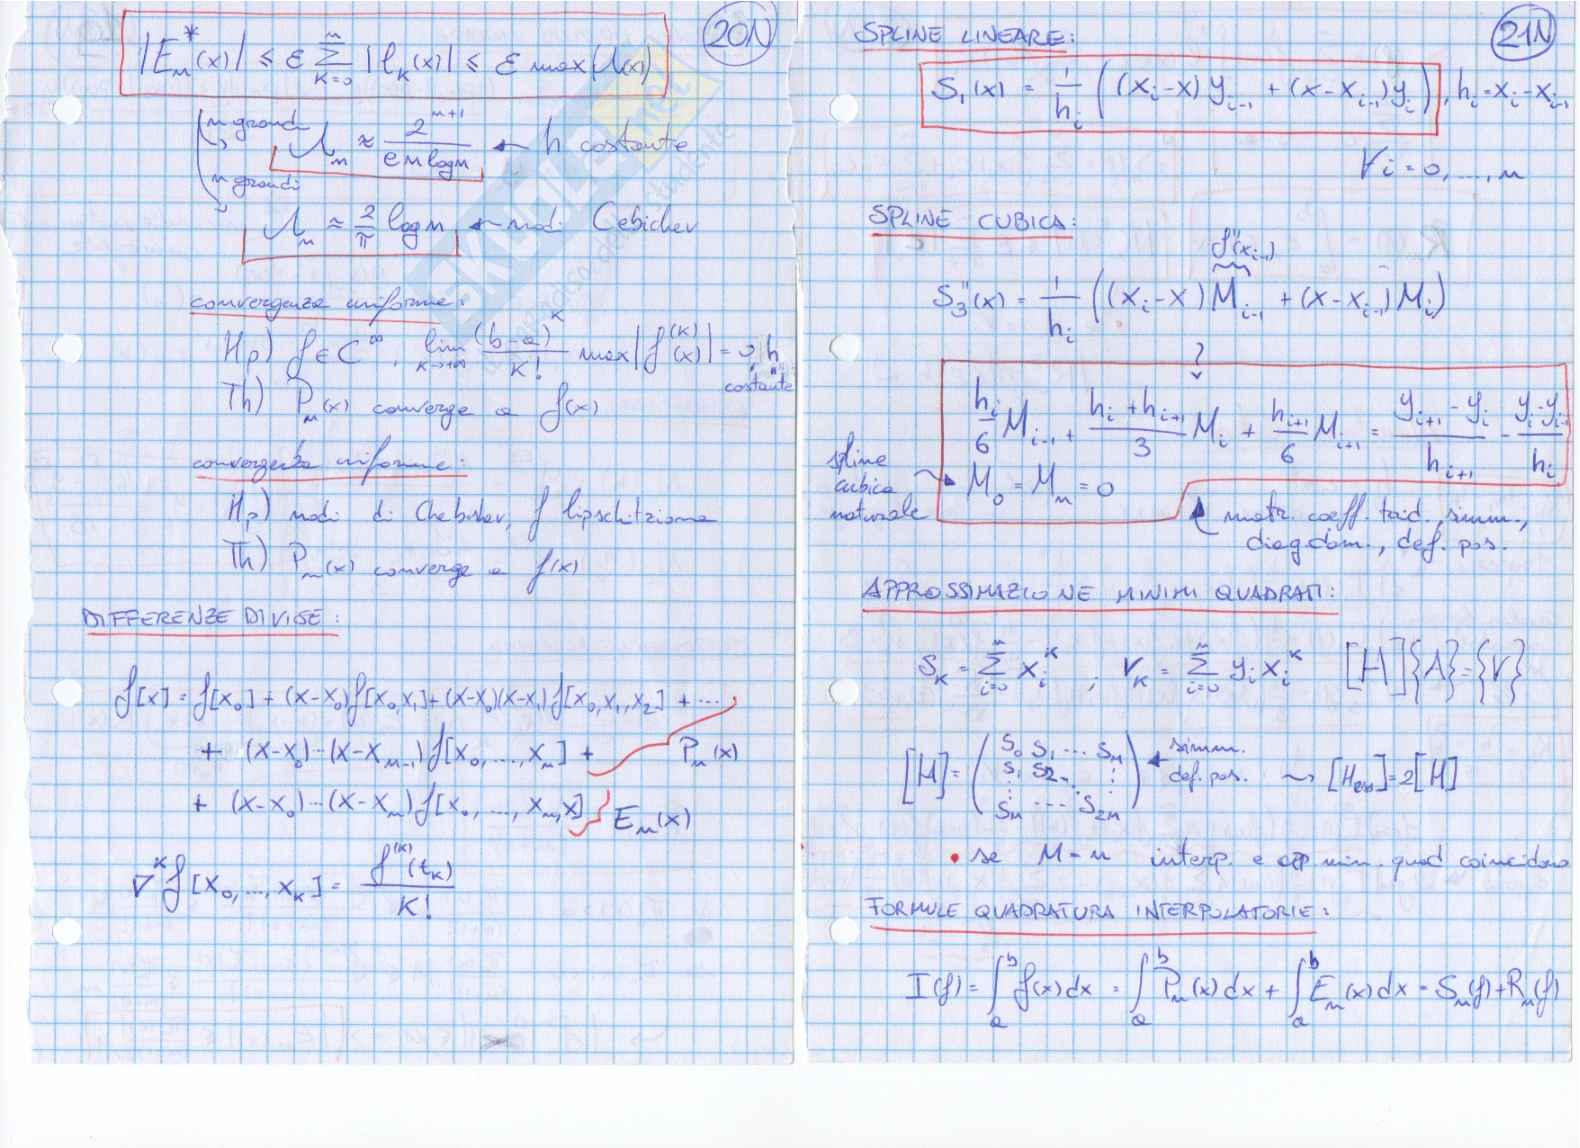 20N
|E*ₙ(x)| ≤ ε Σₖ₌₀ⁿ |ℓₖ(x)| ≤ ε max|Λ(x)|
n grandi Λₙ ≈ 2ⁿ⁺¹/(e n log n) ← h costante
n grandi
Λₙ ≈ 2/π log n ← nodi Cebichev
convergenza uniforme:
Hp) f ∈ C^∞, lim_{k→+∞} (b-a)^k/k! max|f^(k)(x)| = 0, h costante
Th) Pₙ(x) converge a f(x)
convergenza uniforme:
Hp) nodi di Chebishev, f lipschitziana
Th) Pₙ(x) converge a f(x)
DIFFERENZE DIVISE:
f[x] = f[x₀] + (x-x₀)f[x₀,x₁] + (x-x₀)(x-x₁)f[x₀,x₁,x₂] + ...
+ (x-x₀)...(x-xₙ₋₁)f[x₀,...,xₙ] + Pₙ(x)
+ (x-x₀)...(x-xₙ)f[x₀,...,xₙ,x] Eₙ(x)
∇ᵏf[x₀,...,xₖ] = f^(k)(tₖ)/k!
21N
SPLINE LINEARE:
S₁(x) = 1/hᵢ ((xᵢ-x)yᵢ₋₁ + (x-xᵢ₋₁)yᵢ), hᵢ = xᵢ-xᵢ₋₁
∀i = 0,...,n
SPLINE CUBICA:
f''(xᵢ₋₁)
S₃''(x) = 1/hᵢ ((xᵢ-x)Mᵢ₋₁ + (x-xᵢ₋₁)Mᵢ)
?
hᵢ/6 Mᵢ₋₁ + (hᵢ+hᵢ₊₁)/3 Mᵢ + hᵢ₊₁/6 Mᵢ₊₁ = (yᵢ₊₁-yᵢ)/hᵢ₊₁ - (yᵢ-yᵢ₋₁)/hᵢ
spline cubica naturale → M₀ = Mₙ = 0
matr. coeff. trid., simm.,
diag. dom., def. pos.
APPROSSIMAZIONE MINIMI QUADRATI:
Sₖ = Σᵢ₌₀ⁿ xᵢᵏ ; vₖ = Σᵢ₌₀ⁿ yᵢxᵢᵏ [H]{A}={V}
[H] = (S₀ S₁ ... S_M
S₁ S₂ ... ⋮
⋮
S_M ... S₂M) ← simm. def. pos. ⇝ [H_ess]=2[H]
• se M = n interp. e app min. quad coincidono
FORMULE QUADRATURA INTERPOLATORIE:
I(f) = ∫ₐᵇ f(x)dx = ∫ₐᵇ Pₙ(x)dx + ∫ₐᵇ Eₙ(x)dx = Sₙ(f) + Rₙ(f)